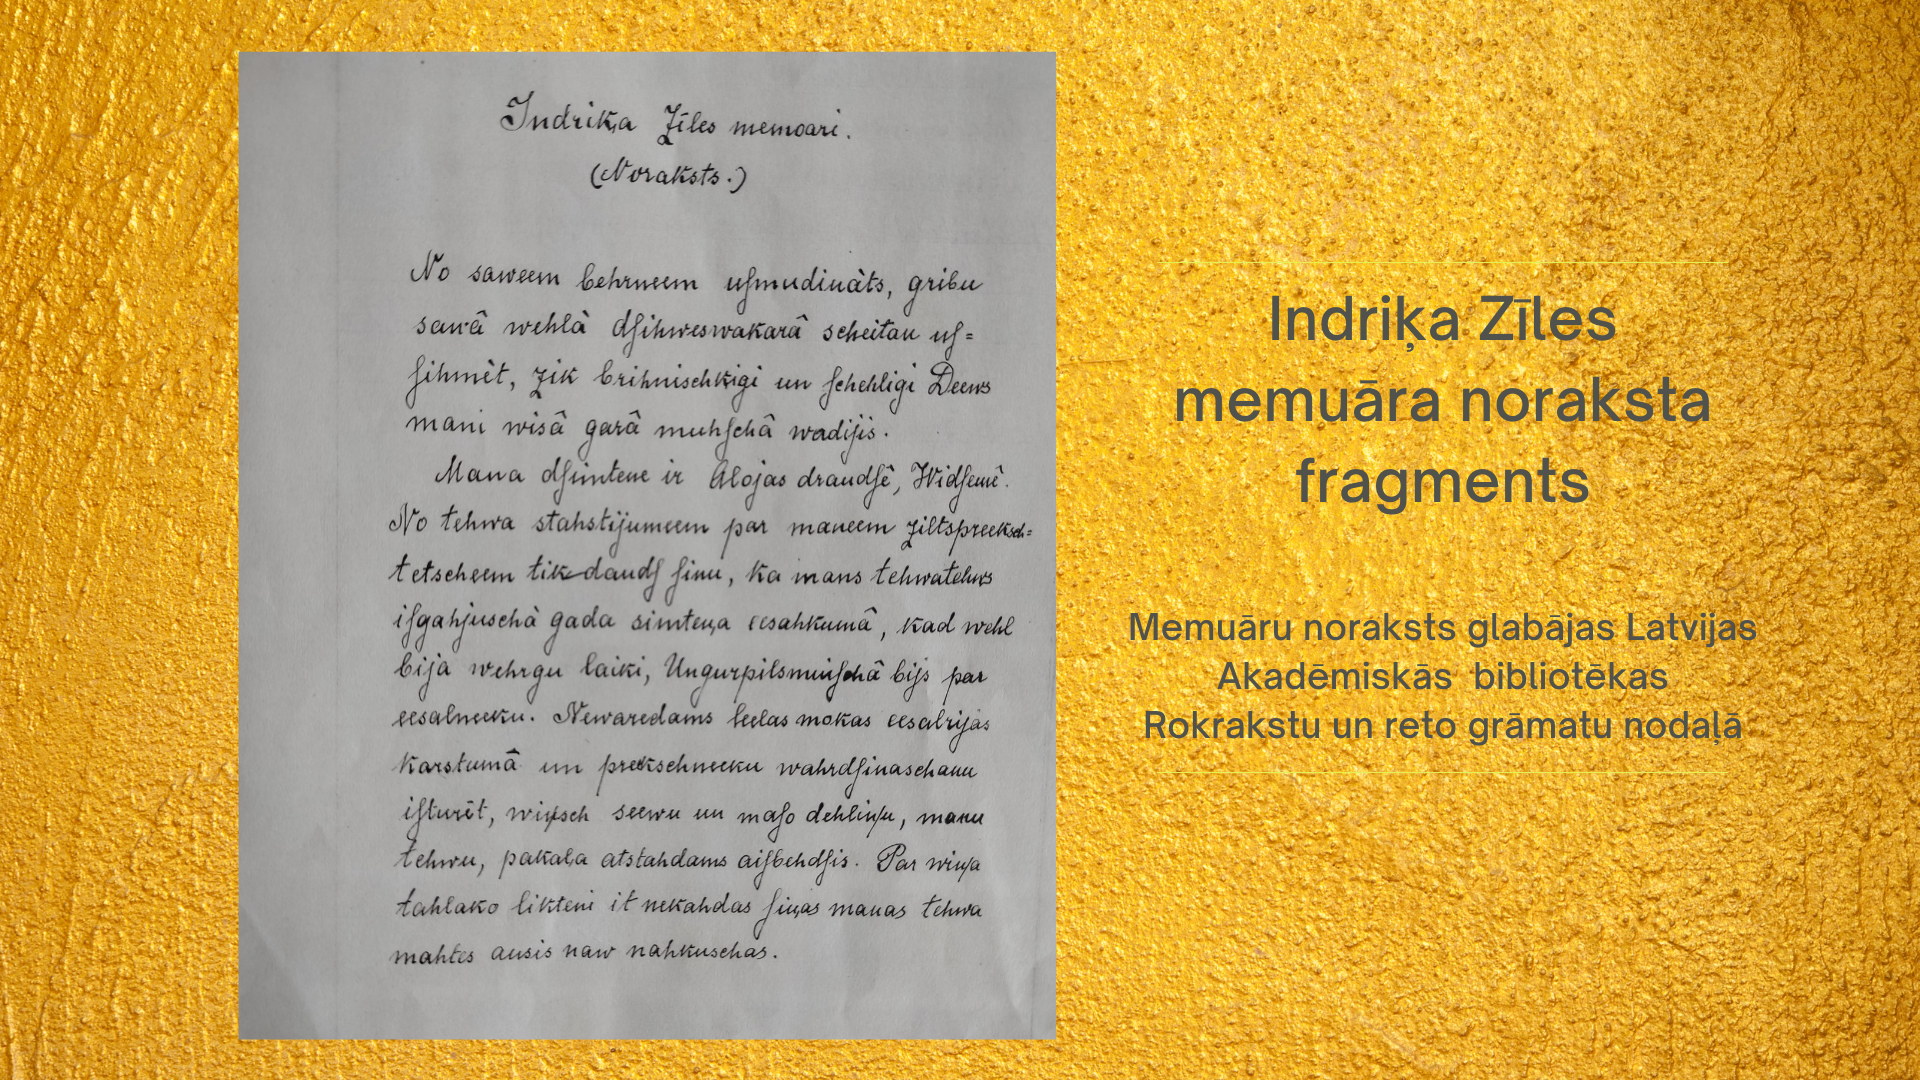 Indriķa Zīles memoari.
(Noraksts.)
No saweem behrneem uſmudinâts, gribu
sawâ wehlâ dſihweswakarâ scheitan uſ=
ſihmêt, zik brihnischkigi un ſchehligi Deews
mani wisâ garâ muhſchâ wadijis.
Mana dſimtene ir Alojas draudſê, Widſemê.
No tehwa stahstijumeem par maneem ziltspreeksch=
tetscheem tik daudſ ſinu, ka mans tehwatehws
iſgahjuschâ gada simteņa eesahkumâ, kad wehl
bija wehrgu laiki, Ungurpilsmuiſchâ bijs par
eesalneeku. Newaredams leelas mokas eesalrijas
karstumâ un preekschneeku wahrdſinaschanu
iſturêt, wiņsch seewu un maſo dehliņu, manu
tehwu, pakaļa atstahdams aiſbehdſis. Par wiņa
tahlako likteni it nekahdas ſiņas manas tehwa
mahtes ausis naw nahkuschas.
Indriķa Zīles
memuāra noraksta
fragments
Memuāru noraksts glabājas Latvijas
Akadēmiskās bibliotēkas
Rokrakstu un reto grāmatu nodaļā